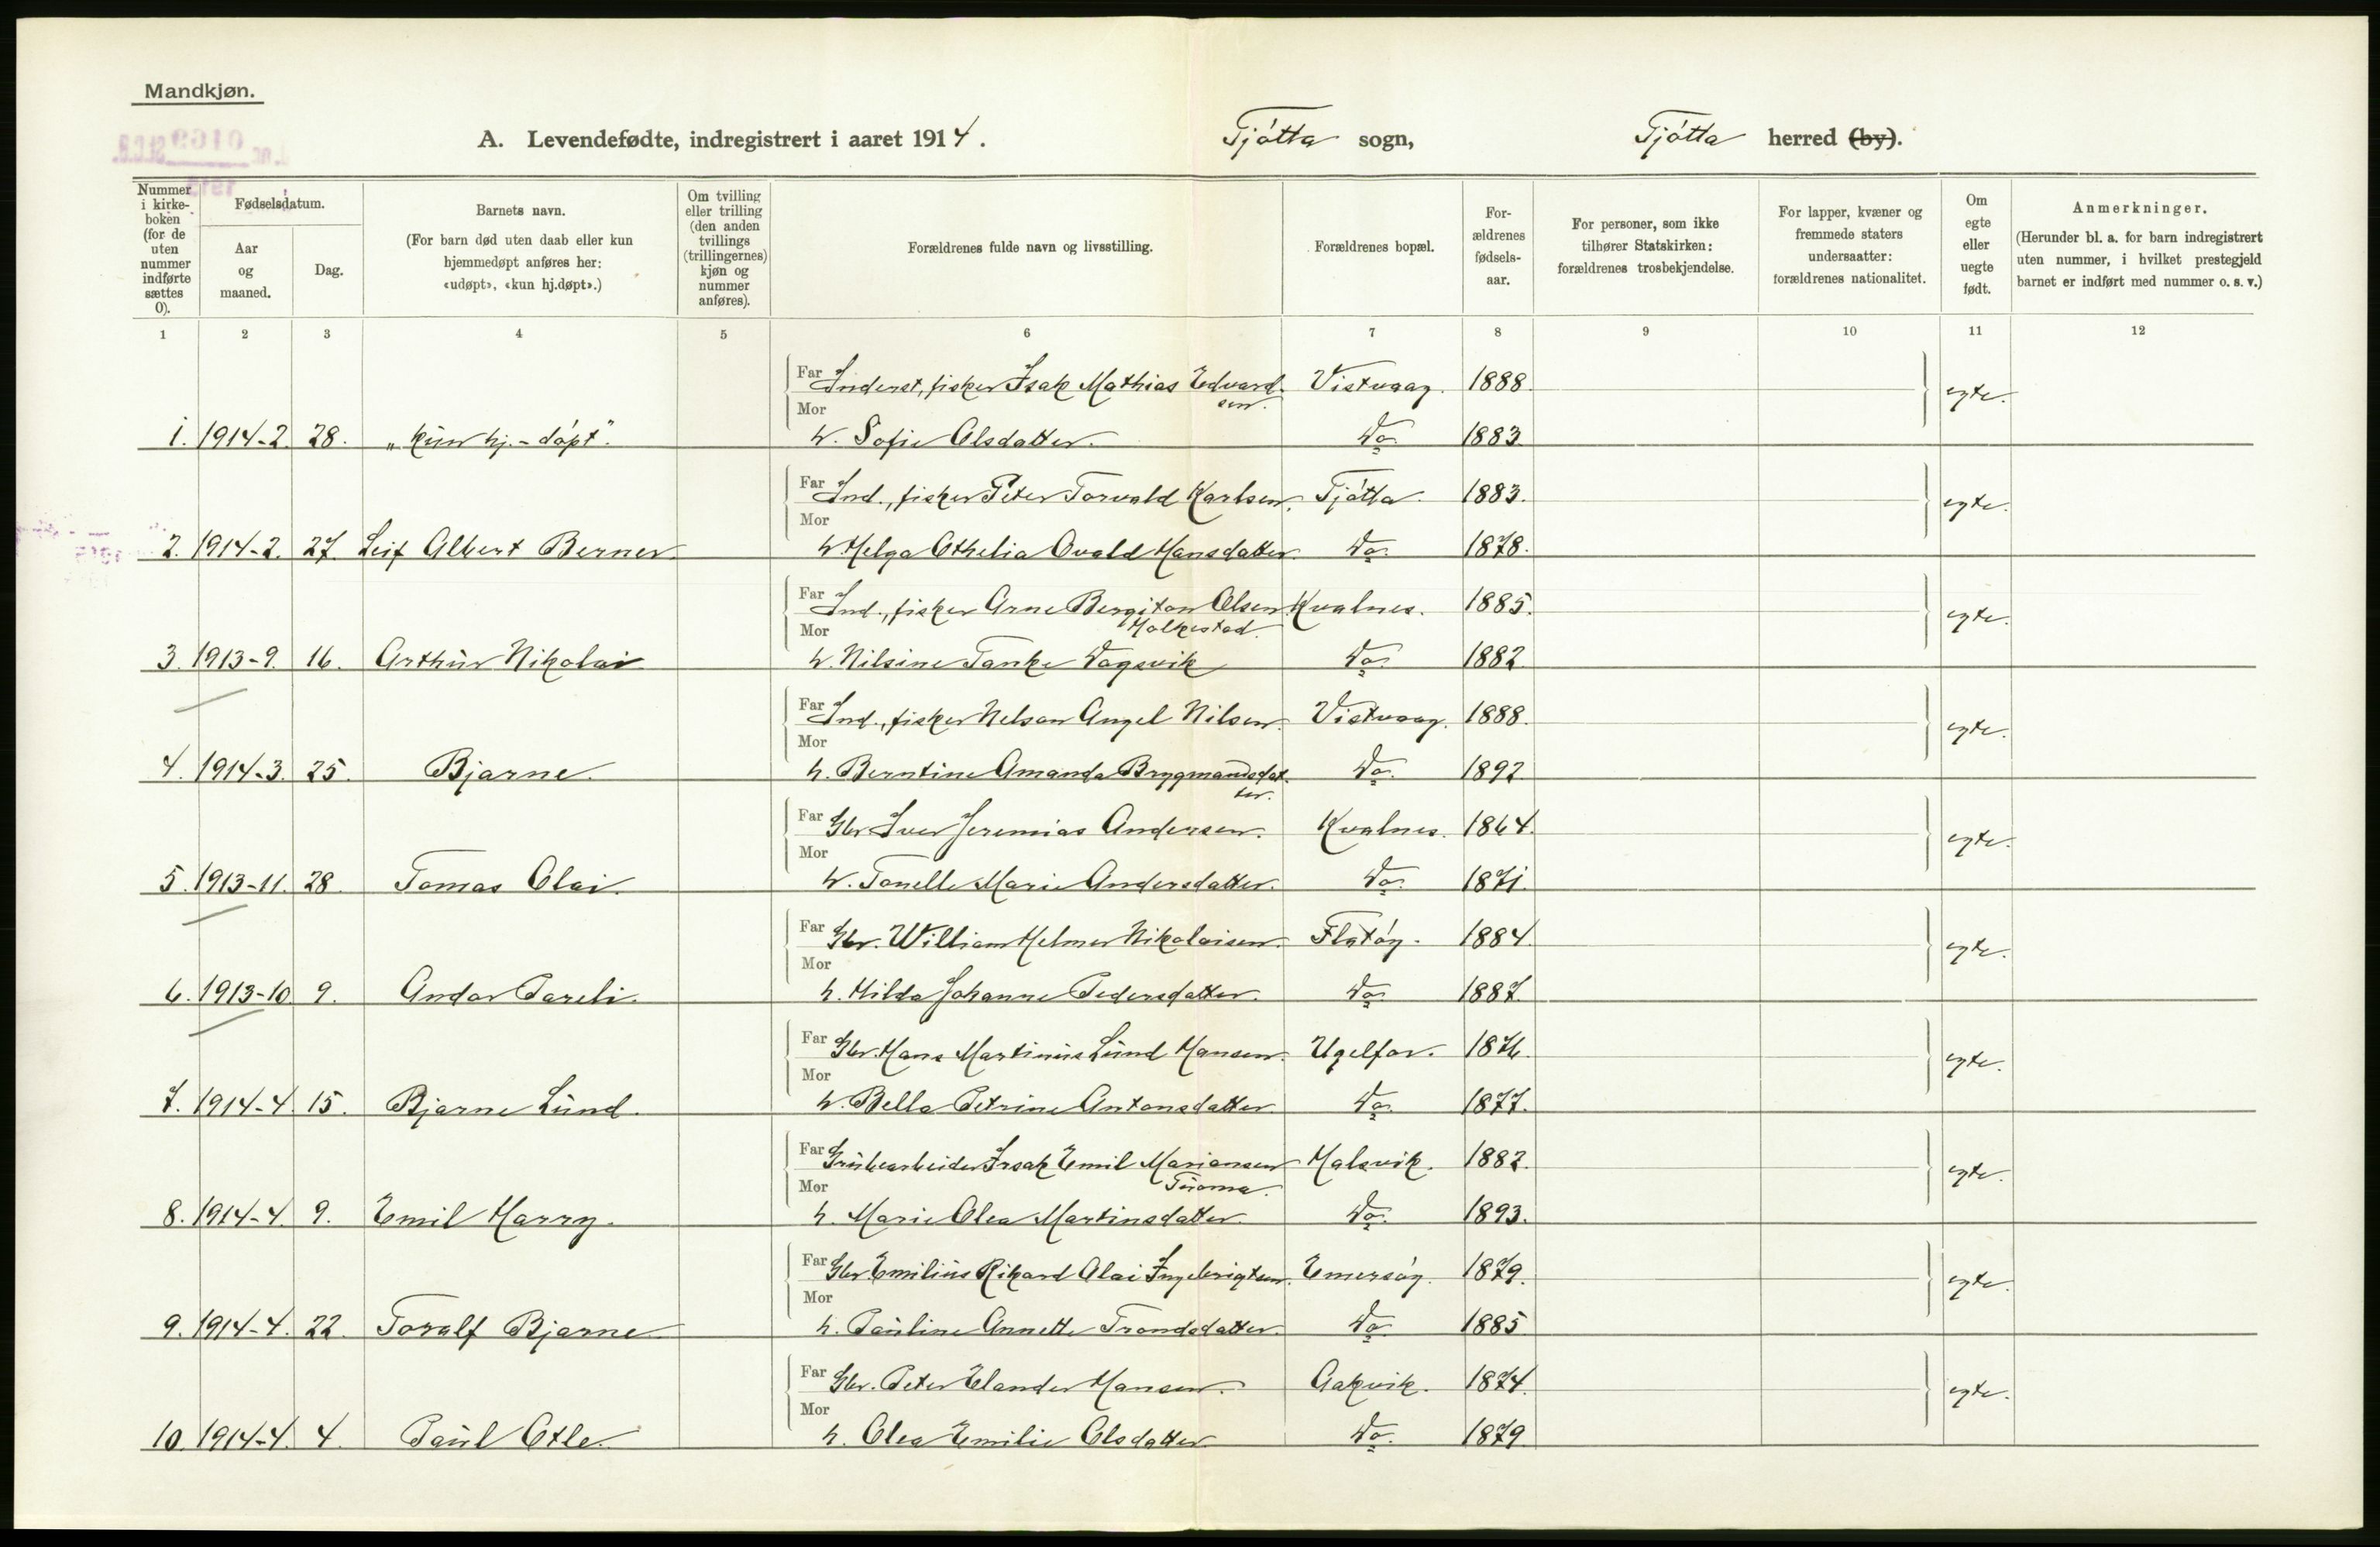 Mandkjøn.
A. Levendefødte, indregistrert i aaret 1914. Tjøtta sogn, Tjøtta herred (by).
Nummer i kirke-boken (for de uten nummer indførte sættes 0).
Fødselsdatum.
Aar og maaned.
Dag.
Barnets navn.
(For barn død uten daab eller kun hjemmedøpt anføres her: «udøpt», «kun hj.døpt».)
Om tvilling eller trilling (den anden tvillings (trillingernes) kjøn og nummer anføres).
Forældrenes fulde navn og livsstilling.
Forældrenes bopæl.
For-ældrenes fødsels-aar.
For personer, som ikke tilhører Statskirken: forældrenes trosbekjendelse.
For lapper, kvæner og fremmede staters undersaatter: forældrenes nationalitet.
Om egte eller uegte født.
Anmerkninger.
(Herunder bl. a. for barn indregistrert uten nummer, i hvilket prestegjeld barnet er indført med nummer o. s. v.)
1 2 3 4 5 6 7 8 9 10 11 12
Far Inderst, fisker Isak Mathias Edvardsen. Vistvaag. 1888. egte.
Mor
1. 1914-2. 28. „kun hj.-døpt". h. Sofie Olsdatter. Do. 1883
Far Ind., fisker Peter Torvald Karlsen. Tjøtta. 1883. egte.
Mor
2. 1914-2. 27. Leif Albert Berner. h. Helga Othelia Ovald Hansdatter. Do. 1878.
Far Ind., fisker Arne Bergiton Olsen Kvalnes. 1885. egte.
Mor Holkestad.
3. 1913-9. 16. Arthur Nikolai h. Nilsine Tanke Vagsvik Do. 1882
Far Ind., fisker Nelson Angel Nilsen. Vistvaag. 1888. egte.
Mor
4. 1914-3. 25. Bjarne. h. Berntine Amanda Brygmandsdatter. Do. 1892
Far Gbr. Iver Jeremias Andersen. Kvalnes. 1864. egte.
Mor
5. 1913-11. 28 Tomas Olai. h. Tonelle Marie Andersdatter. Do. 1871.
Far Gbr. William Helmer Nikolaisen. Flatøy. 1884. egte.
Mor
6. 1913-10 9. Andor Pareli. h. Hilda Johanne Pedersdatter. Do. 1887.
Far Gbr. Hans Martinus Lund Hansen. Ugelfor. 1876. egte.
Mor
7. 1914-4 15. Bjarne Lund. h. Bella Petrine Antonsdatter. Do. 1877.
Far Grubearbeider Isak Emil Mariansen Halsvik. 1882. egte.
Mor Turomo.
8. 1914-4. 9. Emil Harry. h. Marie Olea Martinsdatter. Do. 1893.
Far Gbr. Emilius Rikard Olai Ingebrigtsen. Emersøy. 1879. egte
Mor
9. 1914-4. 22. Toralf Bjarne h. Pauline Annette Trondsdatter. Do. 1885
Far Gbr. Peter Elander Hansen. Gakvik. 1874. egte.
Mor
10. 1914-4. 4. Paul Otle. h. Olea Emilie Olsdatter Do. 1879